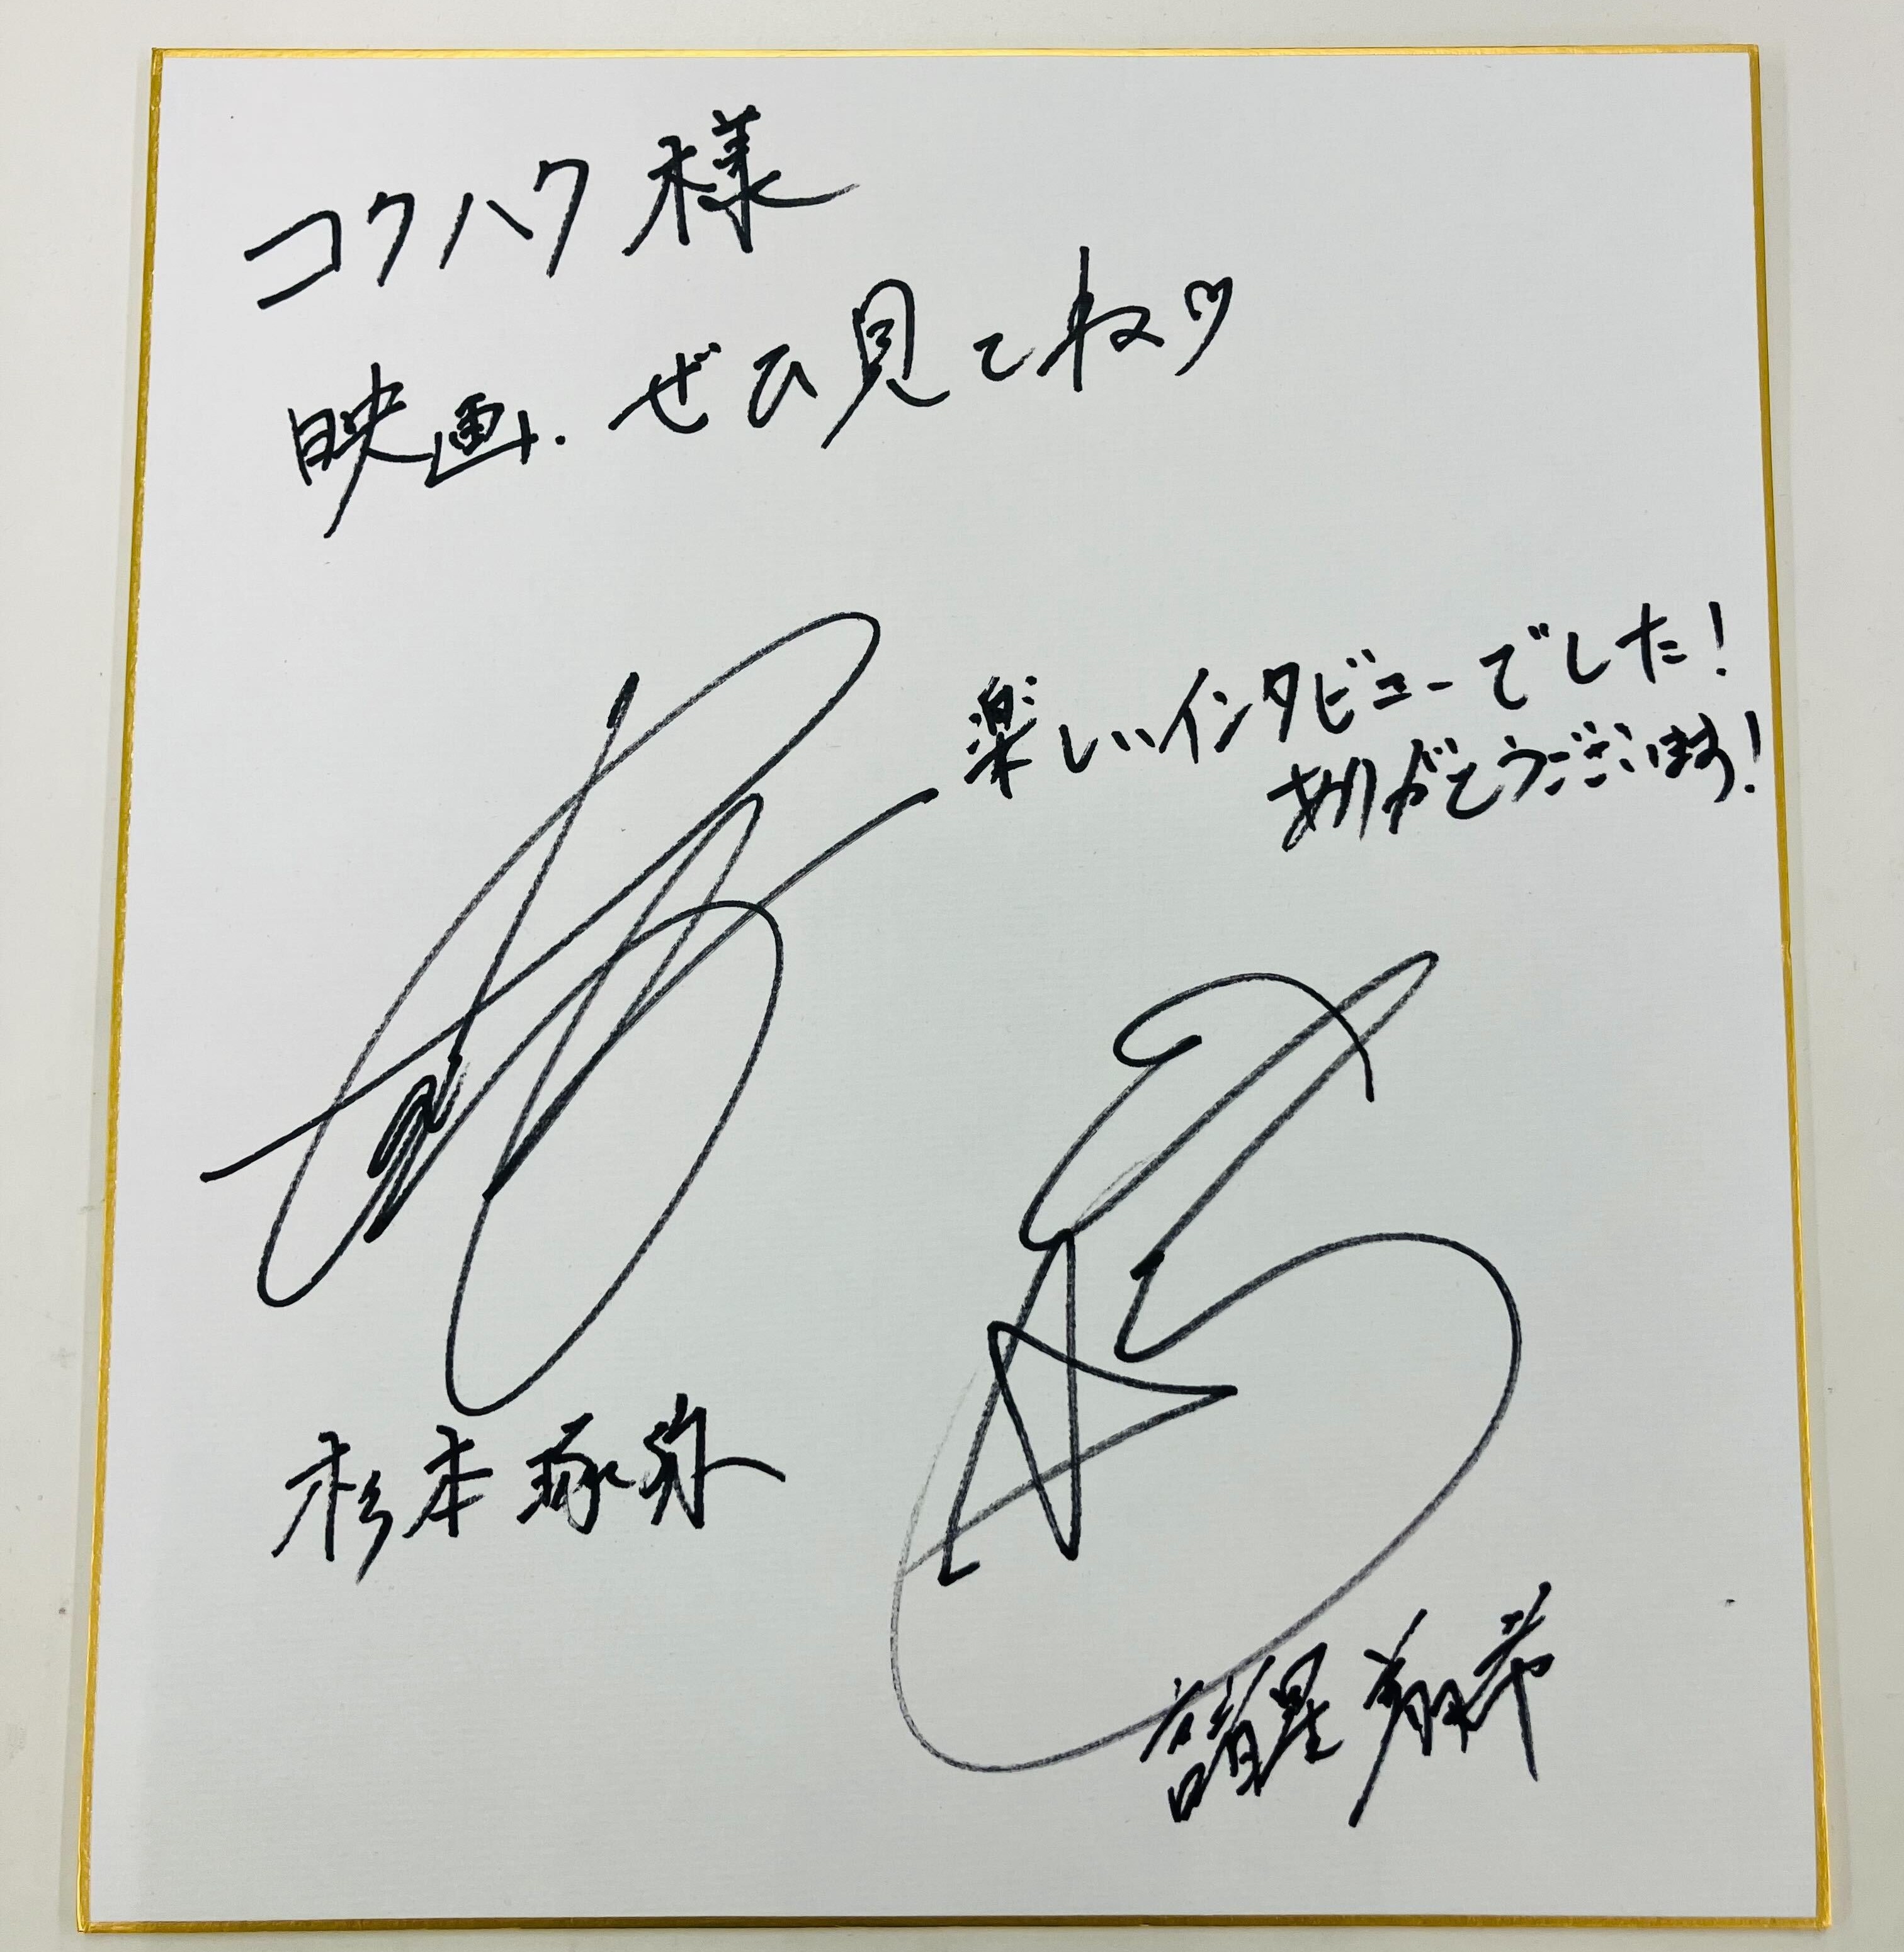 コクハク様
映画.ぜひ見てね♡
楽しいインタビューでした!
ありがとうございます!
杉本琢弥
諸星翔希